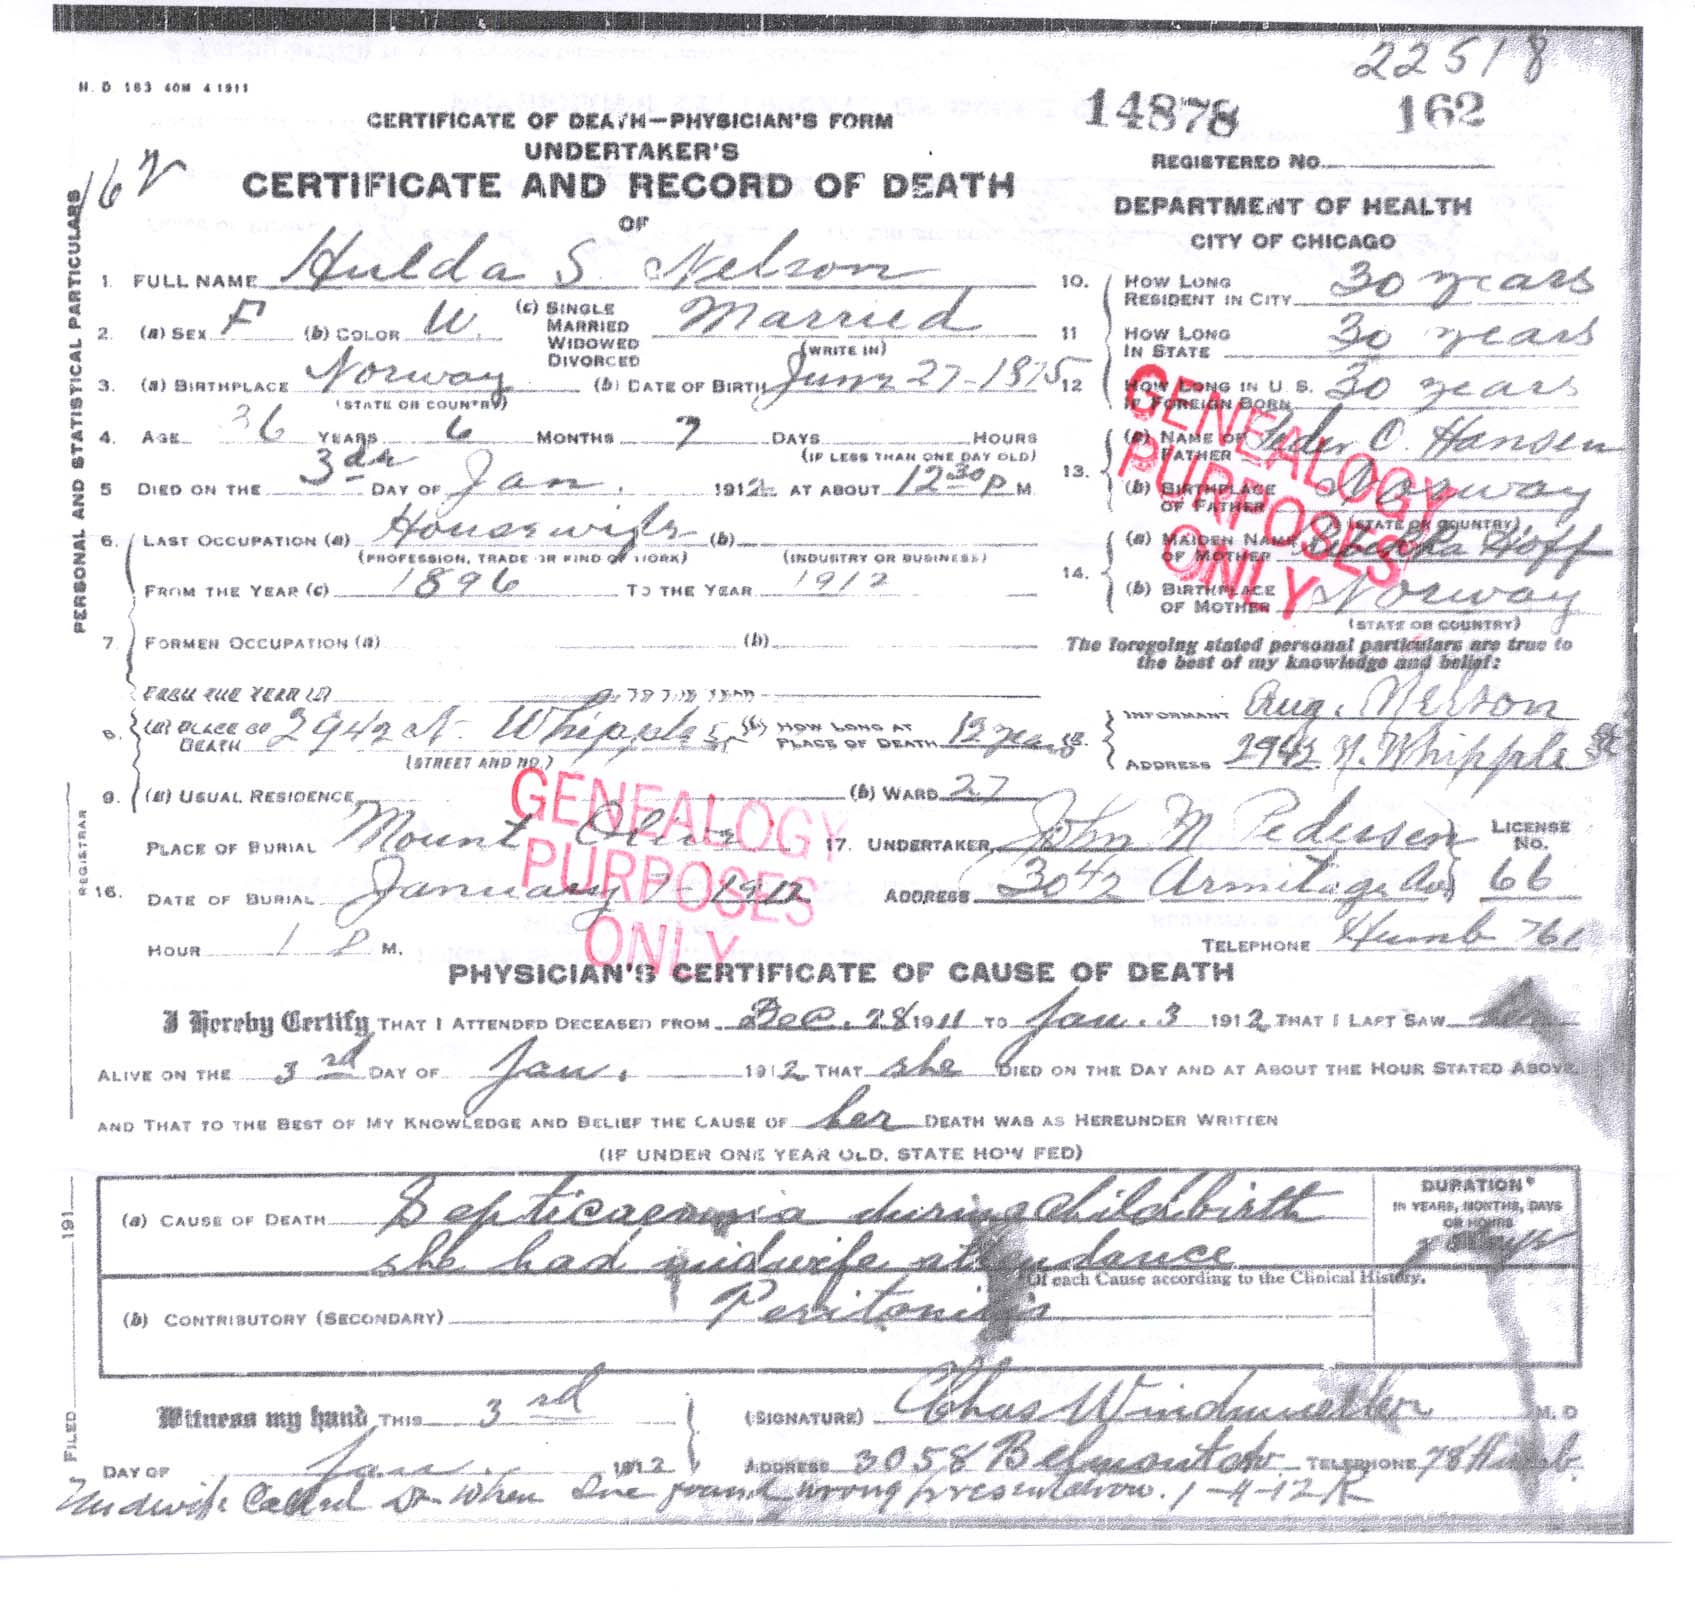 22518
H. D 163 40M 4 1911
14878 162
CERTIFICATE OF DEATH—PHYSICIAN'S FORM
UNDERTAKER'S
REGISTERED NO.
162
CERTIFICATE AND RECORD OF DEATH
OF
DEPARTMENT OF HEALTH
CITY OF CHICAGO
PERSONAL AND STATISTICAL PARTICULARS
1. FULL NAME Hulda S. Nelson
2. (a) SEX F (b) COLOR W. (c) SINGLE MARRIED WIDOWED DIVORCED Married
(WRITE IN)
3. (a) BIRTHPLACE Norway (b) DATE OF BIRTH June 27-1875
(STATE OR COUNTRY)
4. AGE 36 YEARS 6 MONTHS 7 DAYS HOURS
(IF LESS THAN ONE DAY OLD)
5 DIED ON THE 3rd DAY OF Jan. 1912 AT ABOUT 12 30 P M
6. LAST OCCUPATION (a) Housewife (b)
(PROFESSION, TRADE OR KIND OF WORK) (INDUSTRY OR BUSINESS)
FROM THE YEAR (c) 1896 TO THE YEAR 1912
7. FORMER OCCUPATION (a) (b)
FROM THE YEAR
8. (a) PLACE OF DEATH 2942 N. Whipple St (b) HOW LONG AT PLACE OF DEATH 12 years
(STREET AND NO.)
9. (a) USUAL RESIDENCE (b) WARD 27
10. HOW LONG RESIDENT IN CITY 30 years
11 HOW LONG IN STATE 30 years
12 HOW LONG IN U S. IF FOREIGN BORN 30 years
13. (a) NAME OF FATHER Peder C. Hansen
(b) BIRTHPLACE OF FATHER Norway
(STATE OR COUNTRY)
14. (a) MAIDEN NAME OF MOTHER Hoff
(b) BIRTHPLACE OF MOTHER Norway
(STATE OR COUNTRY)
GENEALOGY
PURPOSES
ONLY
The foregoing stated personal particulars are true to
the best of my knowledge and belief:
INFORMANT Aug. Nelson
ADDRESS 2942 N. Whipple St
REGISTRAR
16. PLACE OF BURIAL Mount Olive
DATE OF BURIAL January 7-1912
HOUR 1 P M.
17. UNDERTAKER John M Pedersen LICENSE No. 66
ADDRESS 3042 Armitage Av
TELEPHONE Humb 761
GENEALOGY
PURPOSES
ONLY
PHYSICIAN'S CERTIFICATE OF CAUSE OF DEATH
I Hereby Certify THAT I ATTENDED DECEASED FROM Dec. 28 1911 TO Jan. 3 1912 THAT I LAST SAW her
ALIVE ON THE 3rd DAY OF Jan. 1912 THAT she DIED ON THE DAY AND AT ABOUT THE HOUR STATED ABOVE
AND THAT TO THE BEST OF MY KNOWLEDGE AND BELIEF THE CAUSE OF her DEATH WAS AS HEREUNDER WRITTEN
(IF UNDER ONE YEAR OLD, STATE HOW FED)
(a) CAUSE OF DEATH Septicaemia during childbirth
she had midwife attendance
DURATION*
IN YEARS, MONTHS, DAYS
OR HOURS
Of each Cause according to the Clinical History.
(b) CONTRIBUTORY (SECONDARY) Peritonitis
FILED 191
Witness my hand THIS 3rd
DAY OF Jan. 1912
(SIGNATURE) Chas Windmueller M. D
ADDRESS 3058 Belmont Av TELEPHONE 78 Humb.
Midwife Called Dr when she found wrong presentation. 1-4-12 R